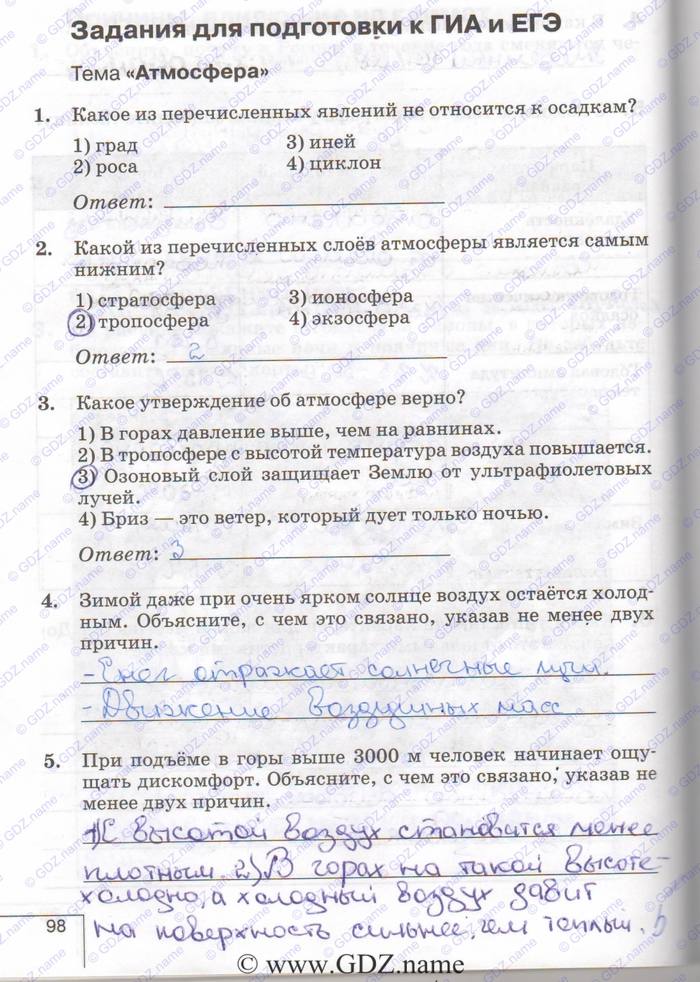 Задания для подготовки к ГИА и ЕГЭ
Тема «Атмосфера»
1. Какое из перечисленных явлений не относится к осадкам?
1) град
3) иней
2) роса
4) циклон
Ответ:
2. Какой из перечисленных слоёв атмосферы является самым
нижним?
1) стратосфера
3) ионосфера
2) тропосфера
4) экзосфера
Ответ: 2
3. Какое утверждение об атмосфере верно?
1) В горах давление выше, чем на равнинах.
2) В тропосфере с высотой температура воздуха повышается.
3) Озоновый слой защищает Землю от ультрафиолетовых
лучей.
4) Бриз — это ветер, который дует только ночью.
Ответ: 3
4. Зимой даже при очень ярком солнце воздух остаётся холод-
ным. Объясните, с чем это связано, указав не менее двух
причин.
- Снег отражает солнечные лучи.
- Движение воздушных масс
5. При подъёме в горы выше 3000 м человек начинает ощу-
щать дискомфорт. Объясните, с чем это связано, указав не
менее двух причин.
1) С высотой воздух становится менее
плотным. 2) В горах на такой высоте-
холодно, а холодный воздух давит
на поверхность сильнее, чем теплый.
98
© www.GDZ.name